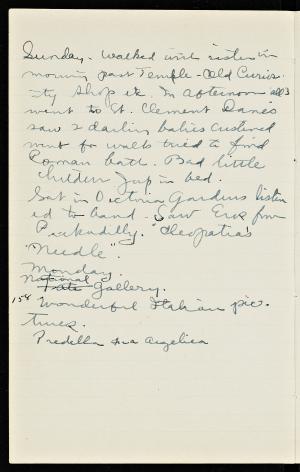 Sunday - Walked with sister in
morning past Temple - Old Curios-
ity Shop etc. In afternoon all 3
went to St. Clement Danes
saw 2 darling babies christened
went for walk tried to find
Roman bath. Bad little
children Jap in bed.
Sat in Victoria Gardens listen
ed to band - Saw Eros from
Pickadilly. "Cleopatra's
"Needle".
Monday.
National
Tate Gallery.
15th Wonderful Italian pic-
tures.
Predella Fra Angelica